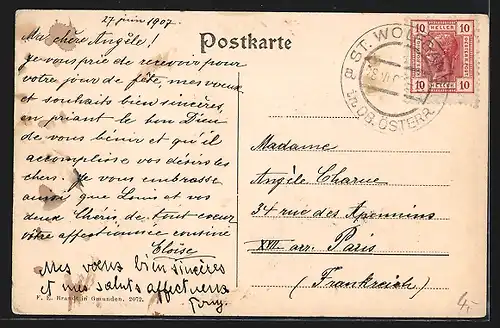 27 juin 1907.
Ma chère Angèle!
Je vous prie de recevoir pour
votre jour de fête, mes voeux
et souhaits bien sincères,
en priant le bon Dieu
de vous bénir et qu'il
accomplisse vos désirs les
chers. Je vous embrasse
ainsi que Louis et vos
deux Chéris de tout coeur
votre affectionnée cousine
Eloïse
Mes voeux bien sincères
et mes saluts affectueux
F. E. Brandt in Gmunden. 2072.
Postkarte
ST. WOLFG
a
ÖSTERR.
10 HELLER 10
10 HELLER 10
Madame
Angèle Charue
34 rue des Apennins
XVII arr. Paris
(Frankreich)
4,-